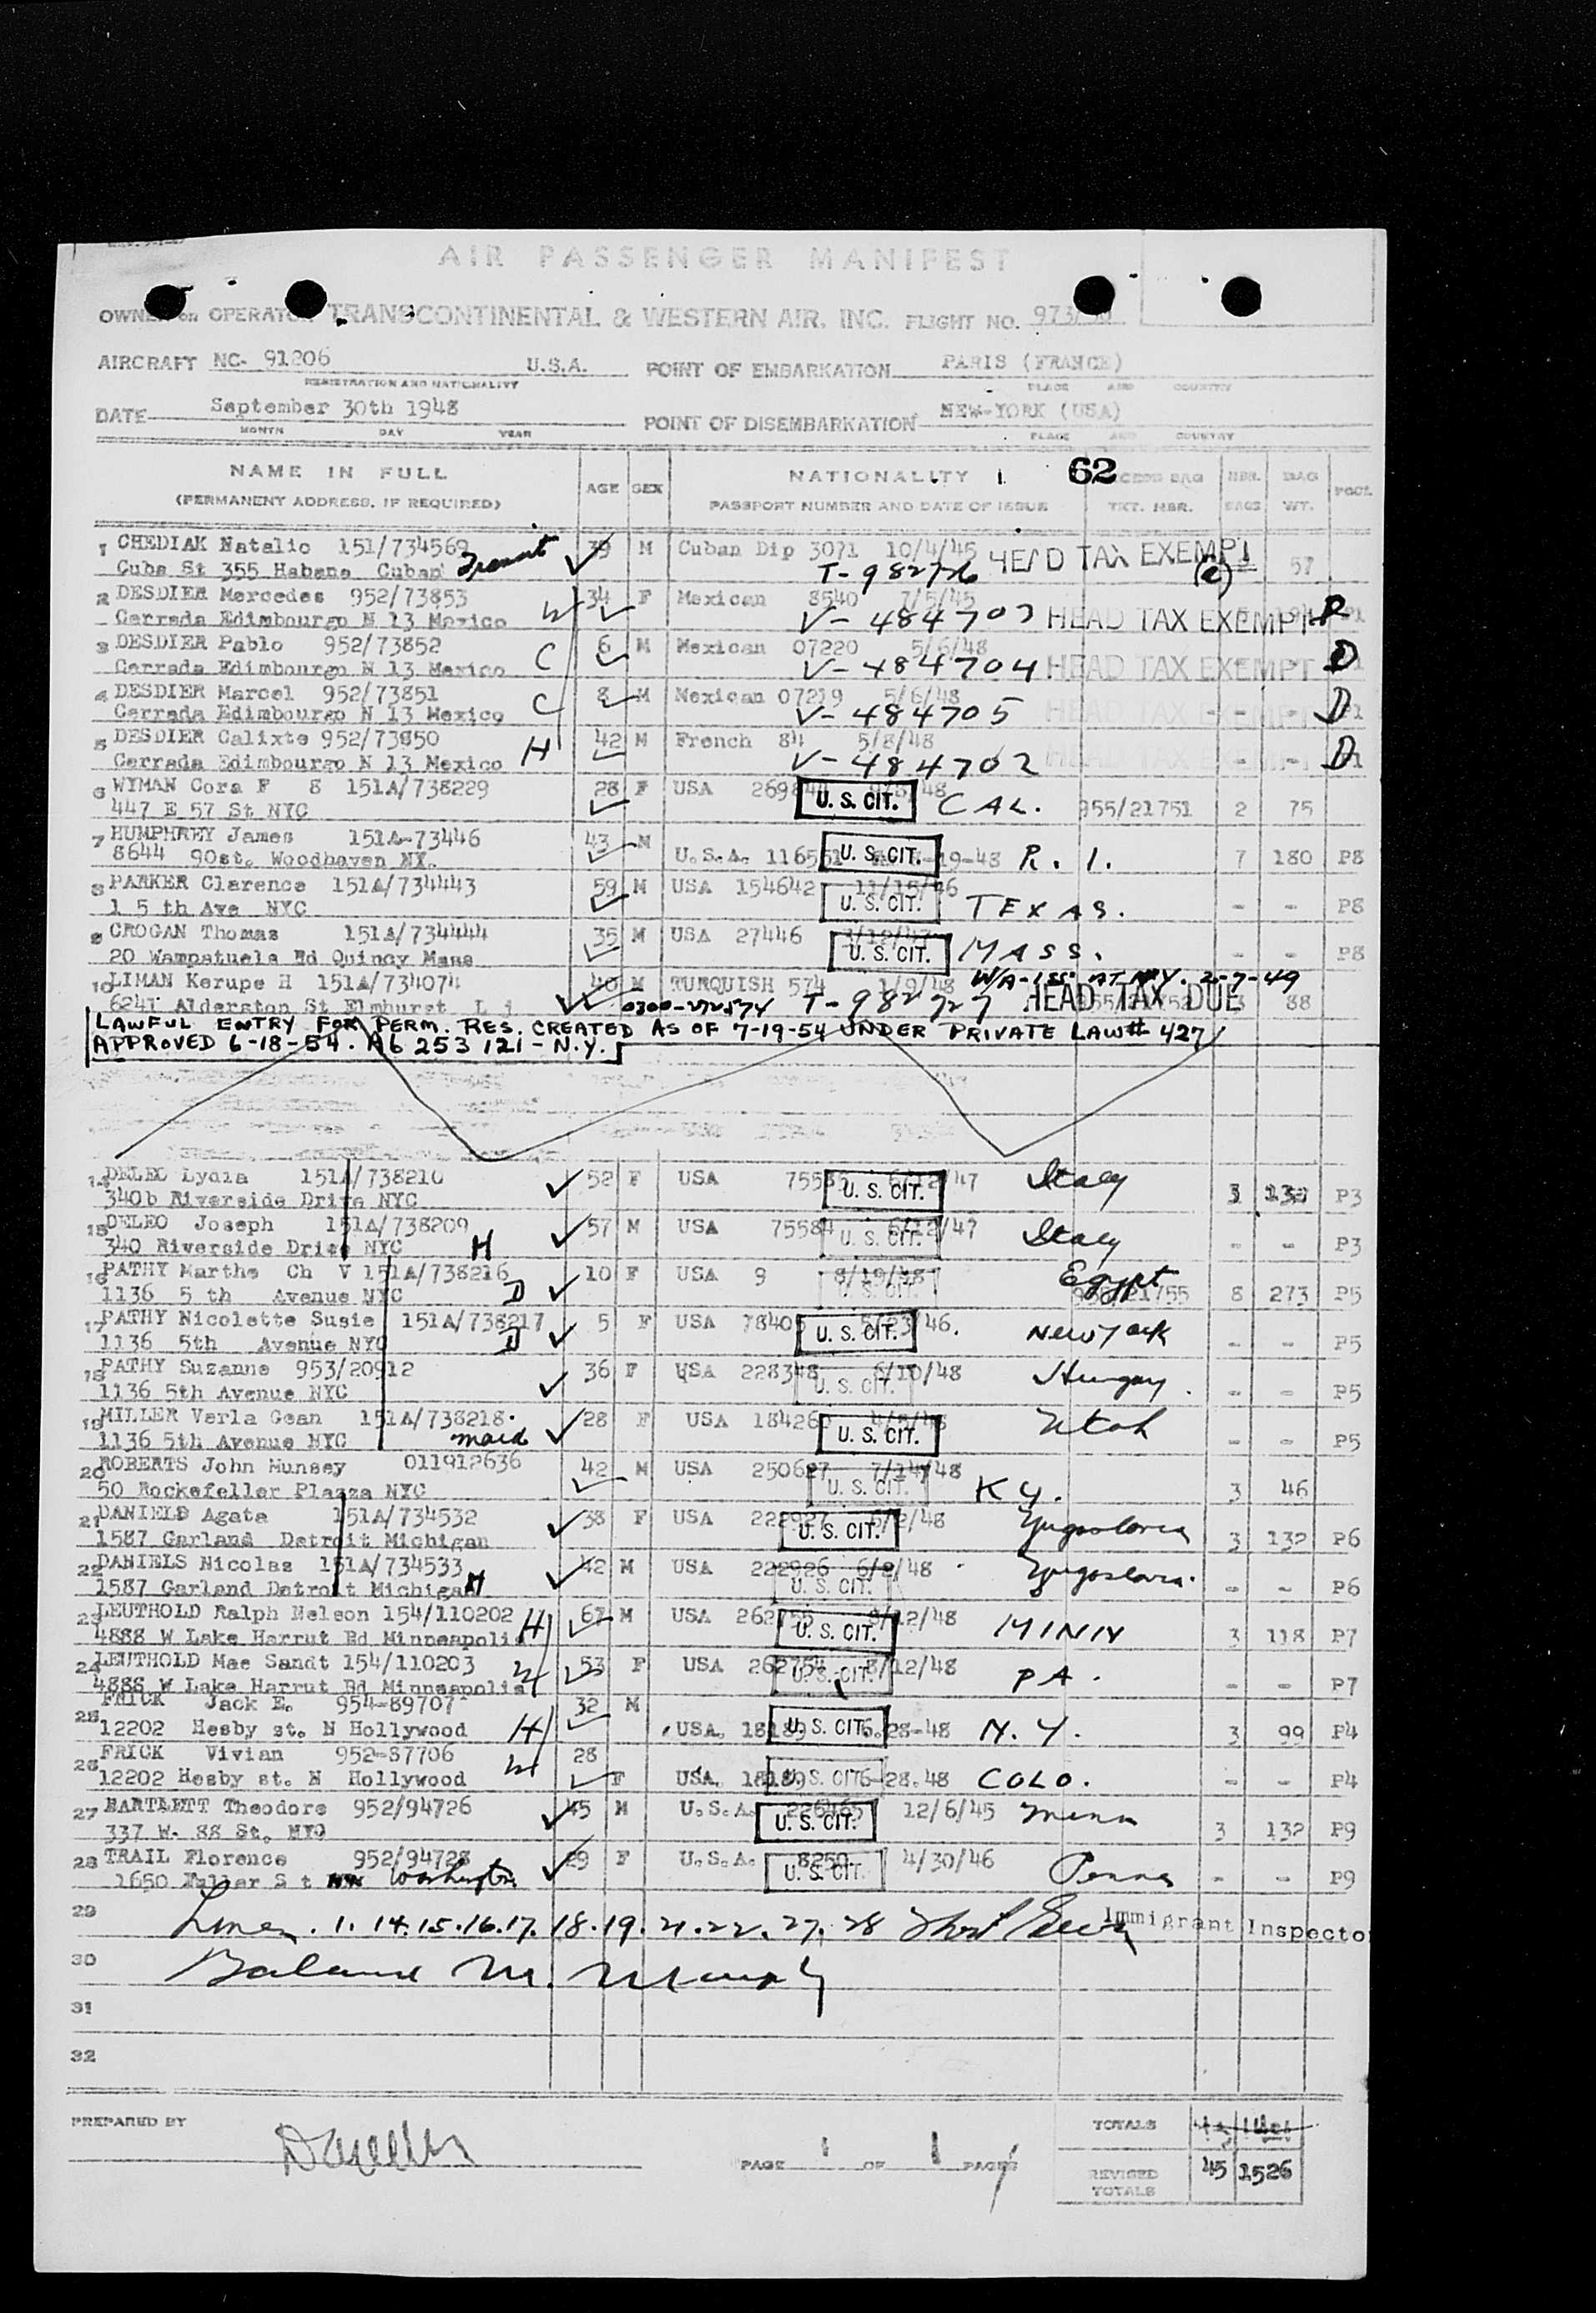 AIR PASSENGER MANIFEST
OWNER OR OPERATOR TRANSCONTINENTAL & WESTERN AIR, INC. FLIGHT NO.
AIRCRAFT NC- 91206 U.S.A. POINT OF EMBARKATION PARIS (FRANCE)
REGISTRATION AND NATIONALITY PLACE AND COUNTRY
DATE September 30th 1948 POINT OF DISEMBARKATION NEW-YORK (USA)
MONTH DAY YEAR PLACE AND COUNTRY
NAME IN FULL AGE SEX NATIONALITY 62 EXCESS BAG NBR. BAG PGCL
(PERMANENT ADDRESS, IF REQUIRED) PASSPORT NUMBER AND DATE OF ISSUE TKT. NBR. BAGS WT.
1 CHEDIAK Natalio 151/734569 39 M Cuban Dip 3071 10/4/45 HEAD TAX EXEMPT
Cuba St 355 Habana Cuban Transit T-982726 (e) 57
2 DESDIER Mercedes 952/73853 34 F Mexican 8540 7/5/45
Cerrada Edimbourgo N 13 Mexico W V-484703 HEAD TAX EXEMPT
3 DESDIER Pablo 952/73852 6 M Mexican 07220 5/6/48
Cerrada Edimbourgo N 13 Mexico C V-484704 HEAD TAX EXEMPT D
4 DESDIER Marcel 952/73851 8 M Mexican 07219 5/6/48
Cerrada Edimbourgo N 13 Mexico C V-484705 HEAD TAX EXEMPT D
5 DESDIER Calixte 952/73850 42 M French 84 5/8/48
Cerrada Edimbourgo N 13 Mexico H V-484702 HEAD TAX EXEMPT D
6 WYMAN Cora F S 151A/738229 28 F USA
447 E 57 St NYC U. S. CIT. CAL. 955/21751 2 75
7 HUMPHREY James 151A-73446 43 M
8644 90st. Woodhaven NY. U.S.A. 116551 U. S. CIT. -19-48 R. I. 7 180 P8
8 PARKER Clarence 151A/734443 59 M USA 154642 11/15/46
1 5 th Ave NYC U. S. CIT. TEXAS. - - P8
9 CROGAN Thomas 151A/734444 35 M USA 27446
20 Wampatuela Rd Quincy Mass U. S. CIT. MASS. - - P8
10 LIMAN Kerupe H 151A/734074 40 M TURQUISH 574 1/9/48 2-7-49
6241 Alderston St Elmhurst L i T-982727 HEAD TAX DUE 88
LAWFUL ENTRY FOR PERM. RES. CREATED AS OF 7-19-54 UNDER PRIVATE LAW # 427
APPROVED 6-18-54. A6 253 121 - N.Y.
14 DELEO Lydia 151A/738210 52 F USA
340b Riverside Drive NYC U. S. CIT. Italy 3 P3
15 DELEO Joseph 151A/738209 57 M USA 75584 6/12/47
340 Riverside Drive NYC H U. S. CIT. Italy - - P3
16 PATHY Marthe Ch V 151A/738216 10 F USA 9 8/19/48
1136 5 th Avenue NYC D U. S. CIT. Egypt 8 273 P5
17 PATHY Nicolette Susie 151A/738217 5 F USA 5/23/46.
1136 5th Avenue NYC D U. S. CIT. New York - - P5
18 PATHY Suzanne 953/20912 36 F USA 228348 6/10/48
1136 5th Avenue NYC U. S. CIT. Hungary. - - P5
19 MILLER Verla Gean 151A/738218. 28 F USA
1136 5th Avenue NYC maid U. S. CIT. Utah - - P5
20 ROBERTS John Munsey 011912636 42 M USA 250627 7/14/48
50 Rockefeller Plazza NYC U. S. CIT. Ky. 3 46
21 DANIELS Agata 151A/734532 38 F USA 222927 6/2/48
1587 Garland Detroit Michigan U. S. CIT. Yugoslavia 3 132 P6
22 DANIELS Nicolas 151A/734533 42 M USA 222926 6/2/48
1587 Garland Detroit Michigan H U. S. CIT. Yugoslavia. - - P6
23 LEUTHOLD Ralph Nelson 154/110202 67 M USA 262755 8/12/48
4888 W Lake Harrut Rd Minneapolis H U. S. CIT. MINN 3 118 P7
24 LEUTHOLD Mae Sandt 154/110203 53 F USA 262754 8/12/48
4888 W Lake Harrut Rd Minneapolis W U. S. CIT. PA. - - P7
25 FRICK Jack E. 954-89707 32 M
12202 Hesby st. N Hollywood H USA. 18189 U. S. CIT. 6.28-48 N.Y. 3 99 P4
26 FRICK Vivian 952-87706 28
12202 Hesby st. N Hollywood W F USA. 18189 U. S. CIT. 6-28.48 COLO. - - P4
27 BARTLETT Theodore 952/94726 45 M U.S.A. 226465 12/6/45 Minn
337 W. 88 St. NYC U. S. CIT. 3 132 P9
28 TRAIL Florence 952/94728 29 F U.S.A. 8250 4/30/46
1650 Fuller S t NW Washington U. S. CIT. Penna - - P9
29 Lines. 1. 14. 15. 16. 17. 18. 19. 21. 22. 27. 28 Immigrant Inspector
30
31
32
PREPARED BY TOTALS
PAGE 1 OF 1 PAGES
REVISED TOTALS 45 1526